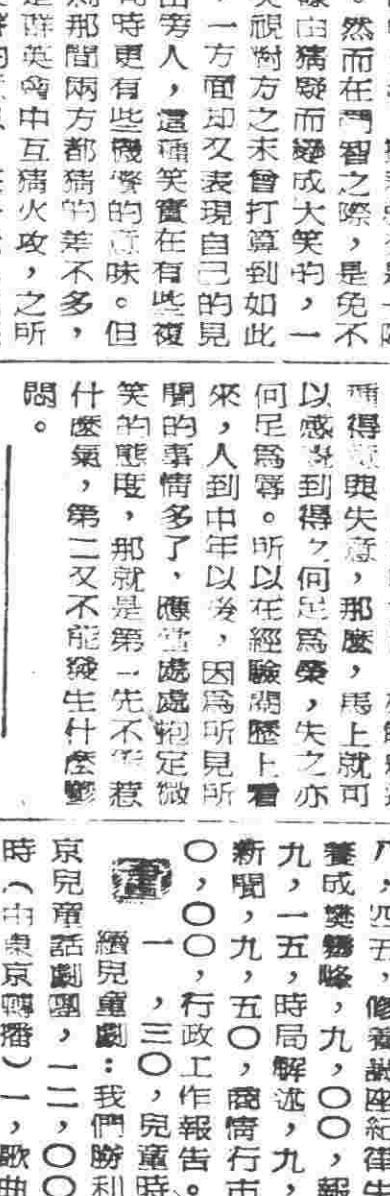 。然而在鬥智之際，是免不
由猜疑而變成大笑的，一
視對方之未曾打算到如此
一方面却又表現自己的見
旁人，這種笑實在有些複
時更有些機警的意味。但
那間兩方都猜的差不多，
群英會中互猜火攻，之所
種得意與失意，那麼，馬上就可
以感覺到得之何足爲榮，失之亦
何足爲辱。所以在經驗閱歷上看
來，人到中年以後，因爲所見所
聞的事情多了，應當處處抱定微
笑的態度，那就是第一先不能惹
什麼氣，第二又不能發生什麼鬱
悶。
八，四五，修養講座紀律
養成樊，九，〇〇，報
九，一五，時局解述，九，
新聞，九，五〇，商情行市
〇，〇〇，行政工作報告。
畫
一，三〇，兒童時
續兒童劇：我們勝利
京兒童話劇團，一二，〇〇
時（由東京轉播）一，歌曲